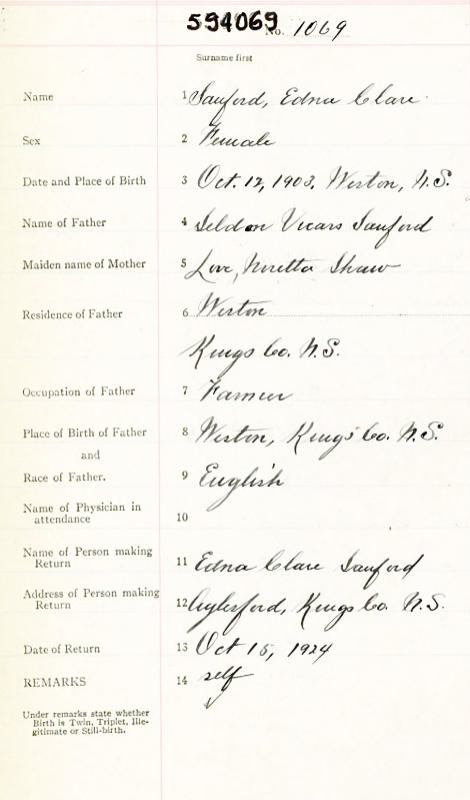 594069
No. 1069
Surname first
Name 1 Sanford, Edna Clare
Sex 2 Female
Date and Place of Birth 3 Oct. 12, 1903. Weston, N.S.
Name of Father 4 Seldon Vicars Sanford
Maiden name of Mother 5 Love, Noretta Shaw
Residence of Father 6 Weston
Kings Co. N.S.
Occupation of Father 7 Farmer
Place of Birth of Father 8 Weston, Kings Co. N.S.
and
Race of Father. 9 English
Name of Physician in
attendance 10
Name of Person making
Return 11 Edna Clare Sanford
Address of Person making
Return 12 Aylesford, Kings Co. N.S.
Date of Return 13 Oct 15, 1924
REMARKS 14 self
Under remarks state whether
Birth is Twin, Triplet, Ille-
gitimate or Still-birth.